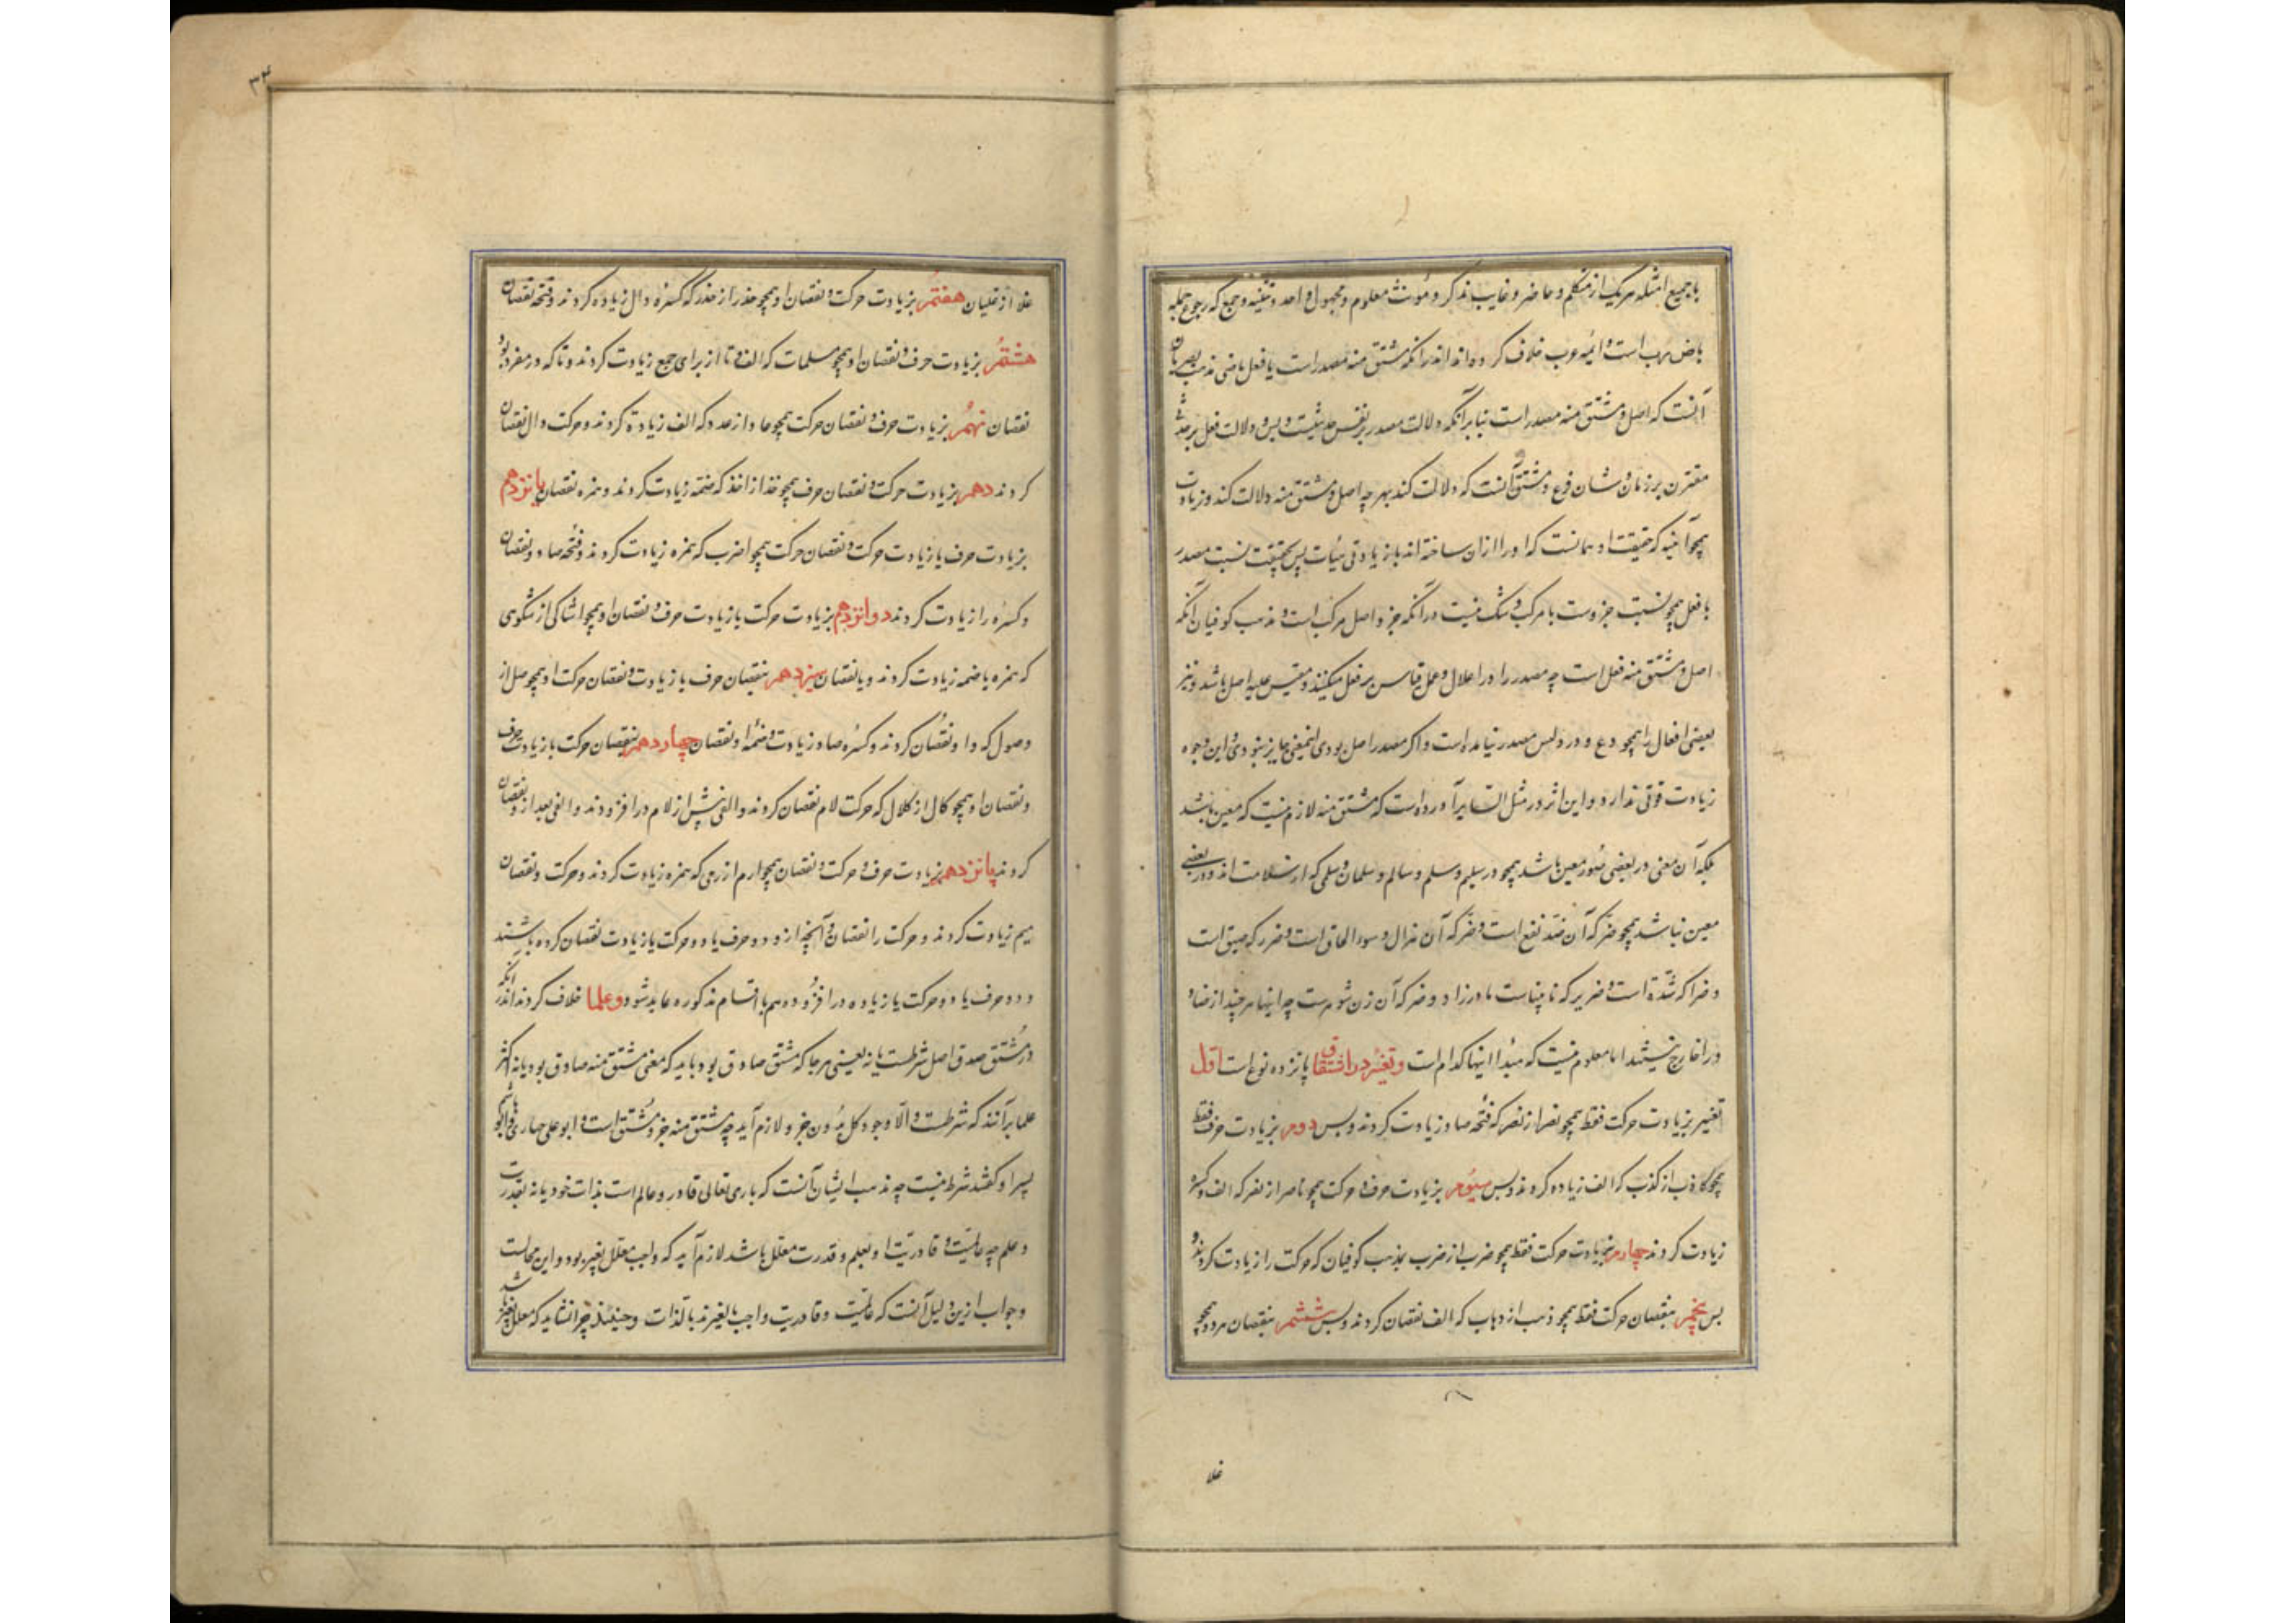 با جمیع امثله هر یک از متکلم و حاضر و غایب مذکر و مؤنث معلوم و مجهول و احد و تثنیه و جمع که رجوع جمله
باض رب است و ائمه عرب خلاف کرده‌اند اندر آنکه مشتق منه مصدر است یا فعل ماضی مذهب بصریان
آنست که اصل و مشتق منه مصدر است بنابر آنکه دلالت مصدر بر نفس حدثیست و بس و دلالت فعل بر حدثی
مقترن بزمان و شان فرع و مشتق آنست که دلالت کند بهر چه اصل و مشتق منه دلالت کند و زیادت
همچو آنیه که حقیقت او همانست که او را از آن ساخته‌اند با زیادتی هیئات پس بحقیقت نسبت مصدر
با فعل همچو نسبت جزوست با مرکب و شک نیست در آنکه جزو اصل مرکب است و مذهب کوفیان آنکه
اصل و مشتق منه فعل است چه مصدر را در اعلال و عمل قیاس بر فعل میکنند و مقیس علیه اصل باشد و نیز
بعضی افعال را همچو دع و ذر و لیس مصدر نیامده است و اگر مصدر اصل بودی اینمعنی جایز نبودی و این وجوه
زیادت قوتی ندارد و ابن اثیر در مثل السایر آورده است که مشتق منه لازم نیست که معین باشد
بلکه آن معنی در بعضی صور معین باشد همچو در سلیم و سلم و سالم و سلمان و سلمی که از سلامت‌اند و در بعضی
معین نباشد همچو ضر که آن ضد نفع است و ضر که آن هزال و سوء الحال است و ضرر که ضیق است
و ضرا که شدة است و ضریر که نابیناست مادرزاد و ضره که آن زن شوهرست چه اینها هر چند از ضاد
و را خارج نیستند اما معلوم نیست که مبدأ اینها کدام است و تغیر در اشتقاق پانزده نوع است اول
تغییر بزیادت حرکت فقط همچو نصر از نصر که فتحه صاد زیادت کردند و بس دوم بزیادت حرف فقط
همچو کاذب از کذب که الف زیاده کردند و بس سیوم بزیادت حرف و حرکت همچو ناصر از نصر که الف و کسره
زیادت کردند چهارم بزیادت حرکت فقط همچو ضرب از ضرب بمذهب کوفیان که حرکت را زیادت کردند و
بس پنجم بنقصان حرکت فقط همچو ذهب از ذهاب که الف نقصان کردند و بس ششم بنقصان هر دو همچو
غلا
۳۴
غلا از غلیان هفتم بزیادت حرکت و نقصان او همچو حذر از حذر که کسره ذال زیاده کردند و فتحه نقصان
هشتم بزیادت حرف و نقصان او همچو مسلمات که الف و تا از برای جمع زیادت کردند و تا که در مفرد بود
نقصان نهم بزیادت حرف و نقصان حرکت همچو عاد از عدد که الف زیادة کردند و حرکت دال نقصان
کردند دهم بزیادت حرکت و نقصان حرف همچو خذ از اخذ که ضمه زیادت کردند و همزه نقصان یانزدهم
بزیادت حرف با زیادت حرکت و نقصان حرکت همچو اضرب که همزه زیادت کردند و فتحه ضاد و نقصان
و کسره را زیادت کردند دوانزدهم بزیادت حرکت با زیادت حرف و نقصان او همچو اشاکی از شکوی
که همزه یا ضمه زیادت کردند و یا نقصان سیزدهم بنقصان حرف با زیادت و نقصان حرکت او همچو صل از
وصول که دا و نقصان کردند و کسره صاد زیادت و ضمه او نقصان چهاردهم بنقصان حرکت با زیادت حرف
و نقصان او همچو کال از کلال که حرکت لام نقصان کردند و الفی پیش از لام در افزودند و الفی بعد از و نقصان
کردند پانزدهم بزیادت حرف و حرکت و نقصان همچو ارم از رمی که همزه زیادت کردند و حرکت و نقصان
میم زیادت کردند و حرکت را نقصان و آنچه از و دو حرف یا دو حرکت یا زیادت نقصان کرده باشند
و دو حرف یا دو حرکت یا زیاده در افزوده هم با اقسام مذکوره عاید شود و علما خلاف کردند اندر آنکه
در مشتق صدق اصل شرطست یا نه یعنی هر جا که مشتق صادق بود باید که معنی مشتق منه صادق بود یا نه اکثر
علما بر آنند که شرطست و الا وجود کل بدون جزو لازم آید چه مشتق منه جزو مشتق است و ابو علی جبائی و ابو هاشم
پسر او گفتند شرط نیست چه مذهب ایشان آنست که باری تعالی قادر و عالم است بذات خود یا نه بقدرت
و علم چه عالمیت و قادریت او بعلم و قدرت معلل باشد لازم آید که واجب معلل بغیر بود و این محالست
و جواب ازین دلیل آنست که عالمیت و قادریت واجب بالغیرند بالذات و حینئذ چرا نشاید که معلل بغیر باشد